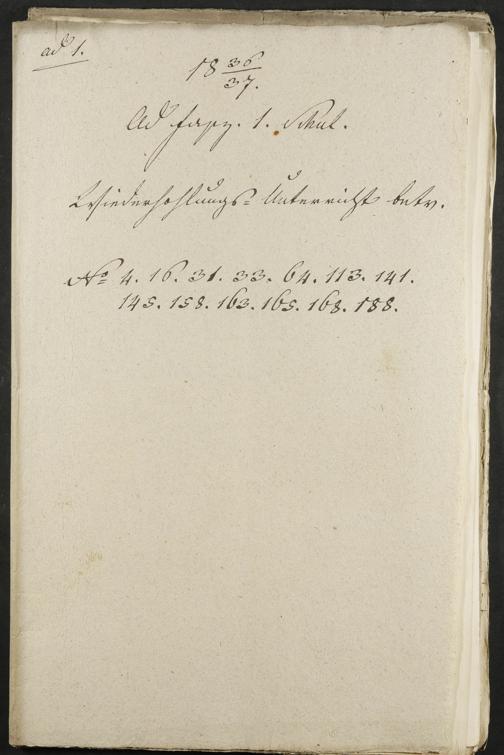 ad 1.
18 36/37.
Ad fasz. 1. Schul.
Wiederhohlungs= Unterricht betr.
No 4. 16. 31. 33. 64. 113. 141.
145. 158. 163. 165. 168. 188.